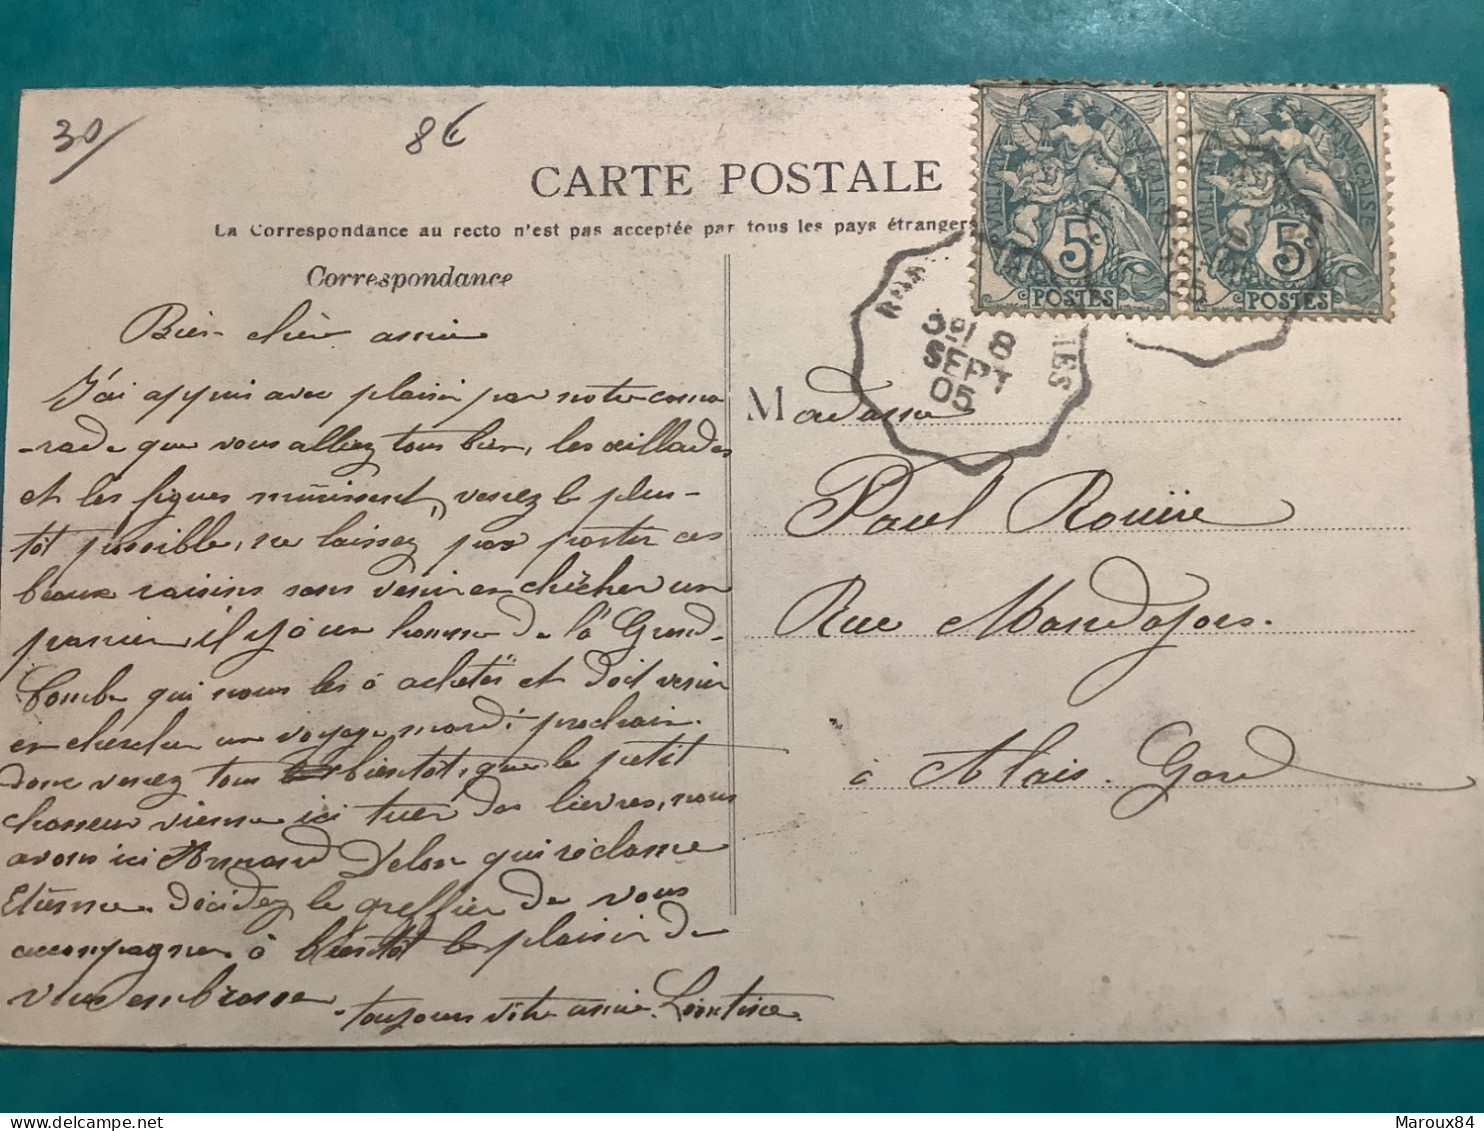 30/
8€
CARTE POSTALE
La Correspondance au recto n'est pas acceptée par tous les pays étrangers
Correspondance
Bien chère amie
J'ai appris avec plaisir par notre cama
-rade que vous alliez tous bien, les œillades
et les figues mûrissent, venez le plus-
tôt possible, ne laissez pas porter ces
beaux raisins sans venir en chercher un
panier, il y à un homme de la Grand-
Combe qui nous les à achetés et doit venir
en chercher un voyage mardi prochain.
donc venez tous bientôt, que le petit
chasseur vienne ici tuer des lièvres, nous
avons ici Armand Delon qui réclame
Etienne. Décidez le greffier de vous
accompagner à bientôt le plaisir de
vous embrasser
toujours vôtre amie Léontine
5c
POSTES
5c
POSTES
8
SEPT
05
MES
Madame
Paul Rouvière
Rue Mandajors.
à Alais. Gard
Maroux84